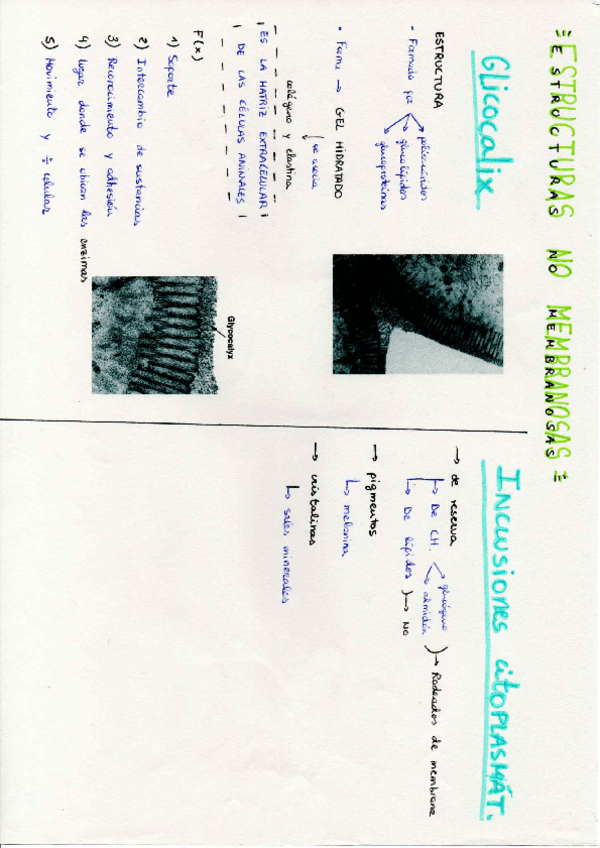 = ESTRUCTURAS NO MEMBRANOSAS =
ESTRUCTURAS NO MEMBRANOSAS
GLICOCALIX
ESTRUCTURA
• Formado por
polisacáridos
glucolípidos
glucoproteínas
• Forma → GEL HIDRATADO
se asocia
colágeno y elastina
¡ES LA MATRIZ EXTRACELULAR!
DE LAS CÉLULAS ANIMALES
F(x)
1) Soporte
2) Intercambio de sustancias
3) Reconocimiento y adhesión
4) Lugar donde se ubican las enzimas
5) Movimiento y ÷ celular
Glycocalyx
INCLUSIONES CITOPLASMÁT.
→ de reserva
↳ De CH.
glucógeno
almidón
→ Rodeados de membrana
↳ De lípidos ) → NO
→ pigmentos
↳ melanina
→ cristalinas
↳ sales minerales